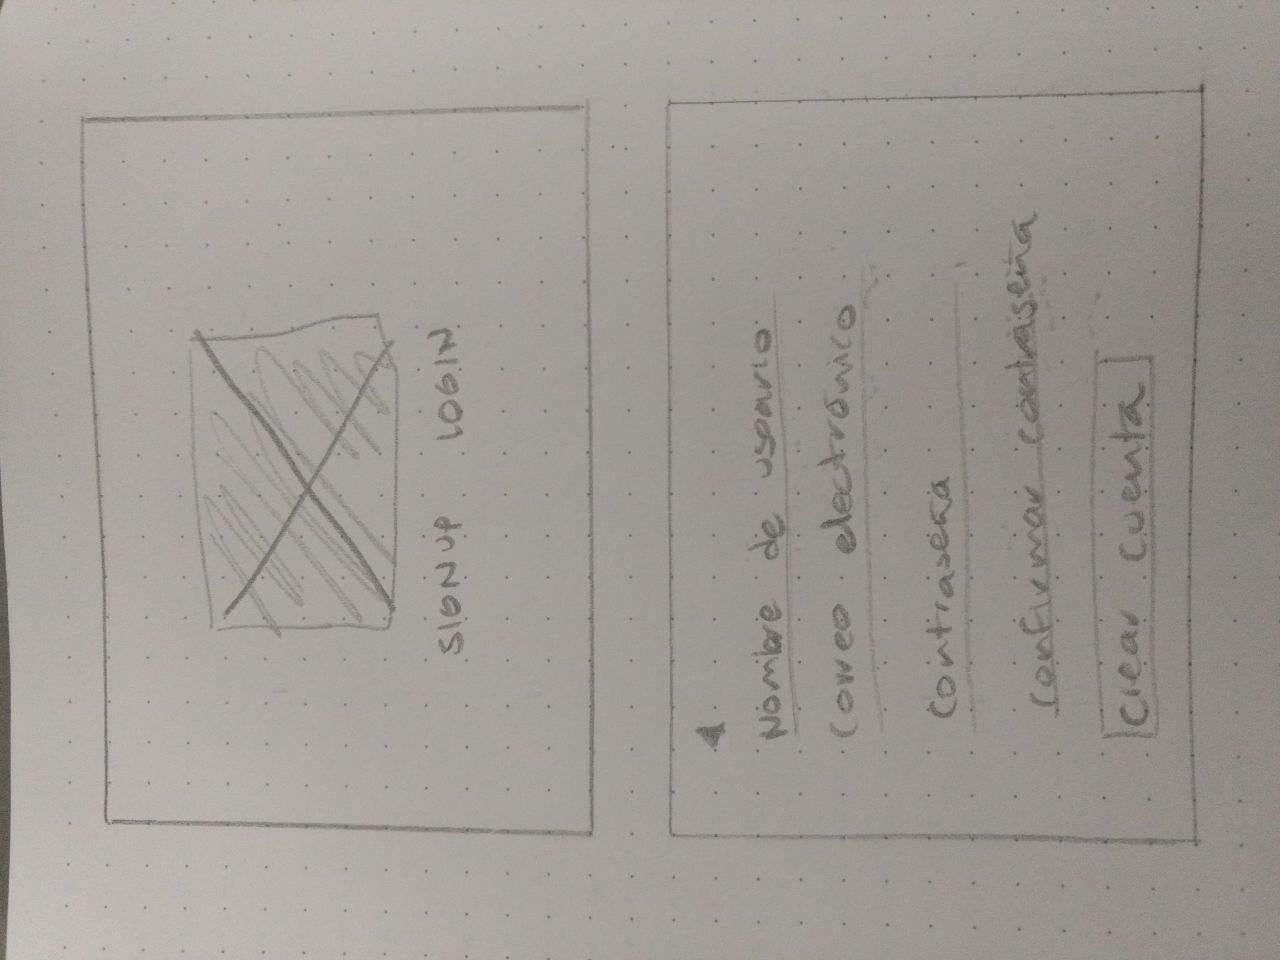 SIGNUP LOGIN
Nombre de usuario
Correo electrónico
Contraseña
confirmar contraseña
Crear cuenta